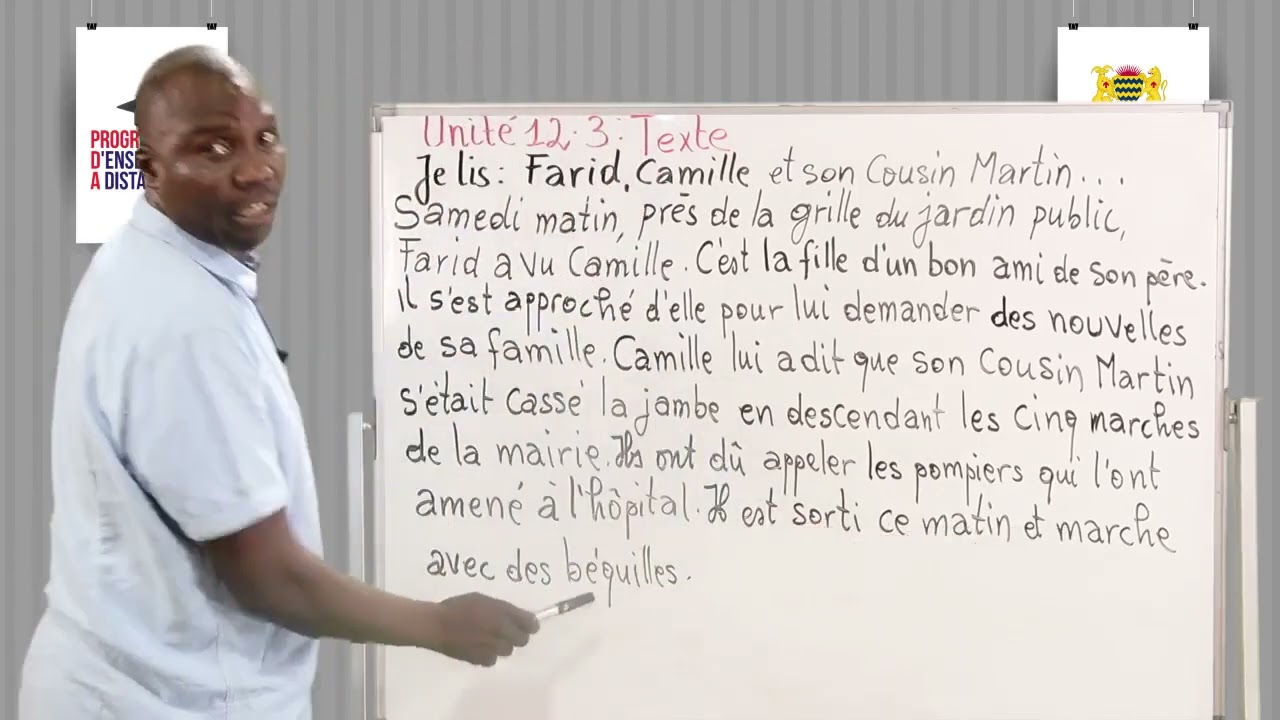 PROGR
D'ENS
A DISTA
Unité 12.3: Texte
Je lis: Farid, Camille et son Cousin Martin...
Samedi matin, près de la grille du jardin public,
Farid a vu Camille. C'est la fille d'un bon ami de son père.
Il s'est approché d'elle pour lui demander des nouvelles
de sa famille. Camille lui a dit que son Cousin Martin
s'était cassé la jambe en descendant les cinq marches
de la mairie. Ils ont dû appeler les pompiers qui l'ont
amené à l'hôpital. Il est sorti ce matin et marche
avec des béquilles.